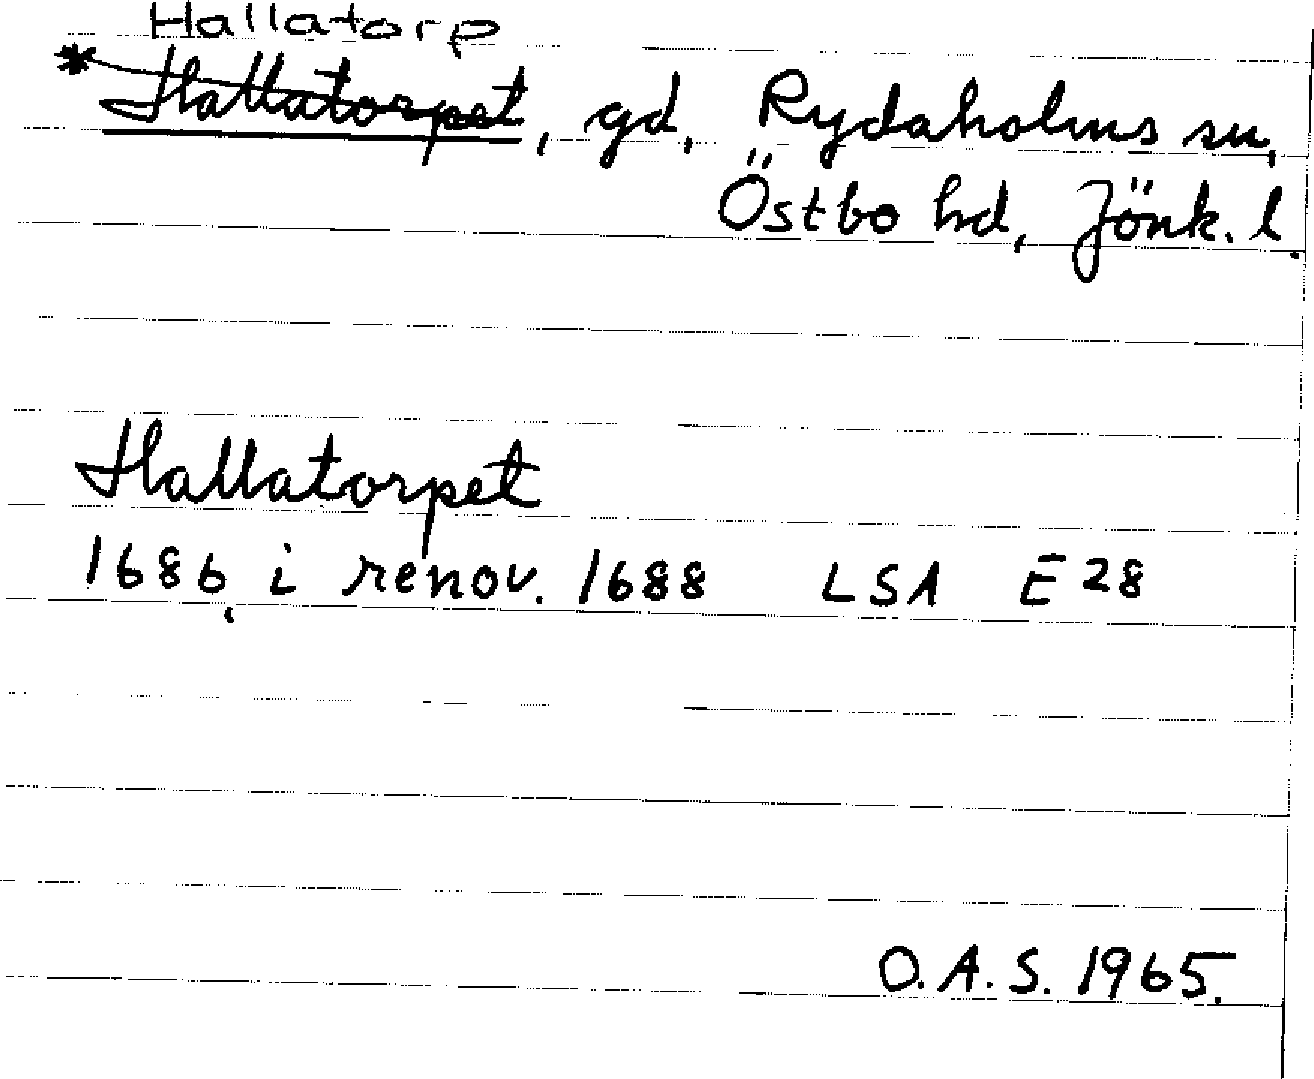 Hallatorp
* Hallatorpet, gd, Rydaholms sn,
Östbo hd, Jönk. l.
Hallatorpet
1686, i renov. 1688 LSA E 28
O.A.S. 1965.